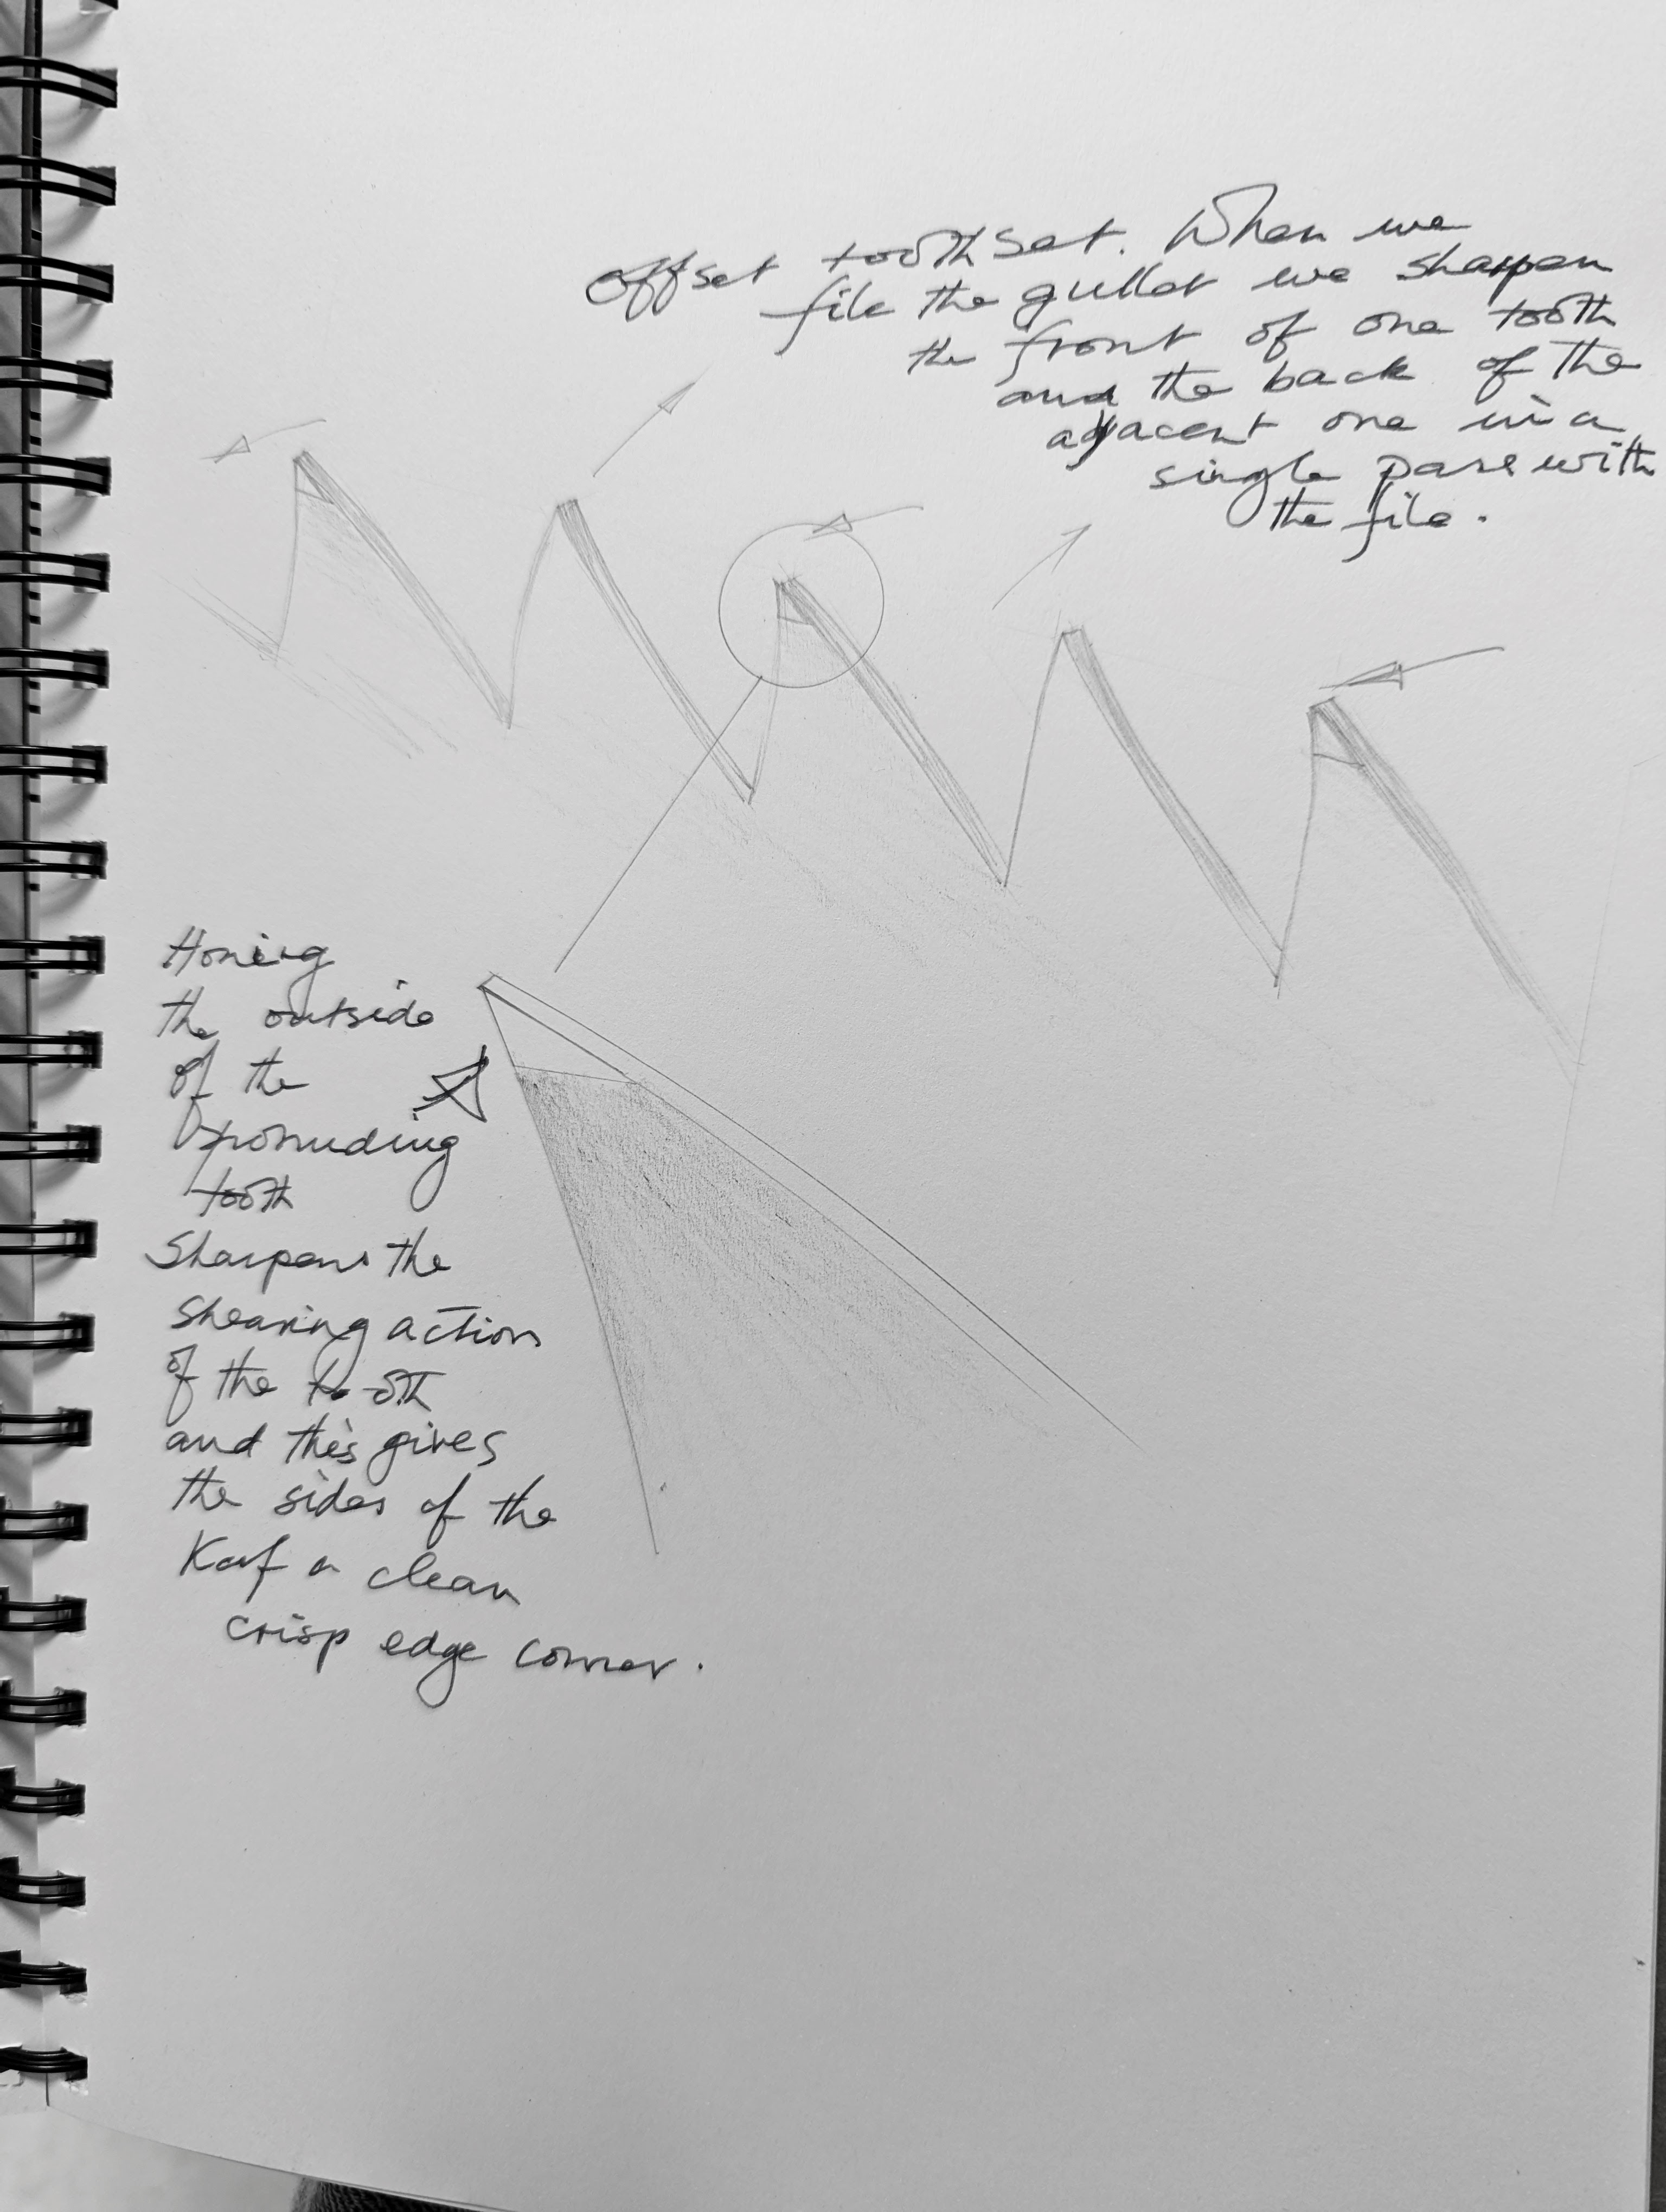 offset tooth set. When we
file the gullet we sharpen
the front of one tooth
and the back of the
adjacent one in a
single pass with
the file.
Honing
the outside
of the
protruding
tooth
Sharpens the
shearing action
of the tooth
and this gives
the sides of the
Kerf a clean
crisp edge corner.